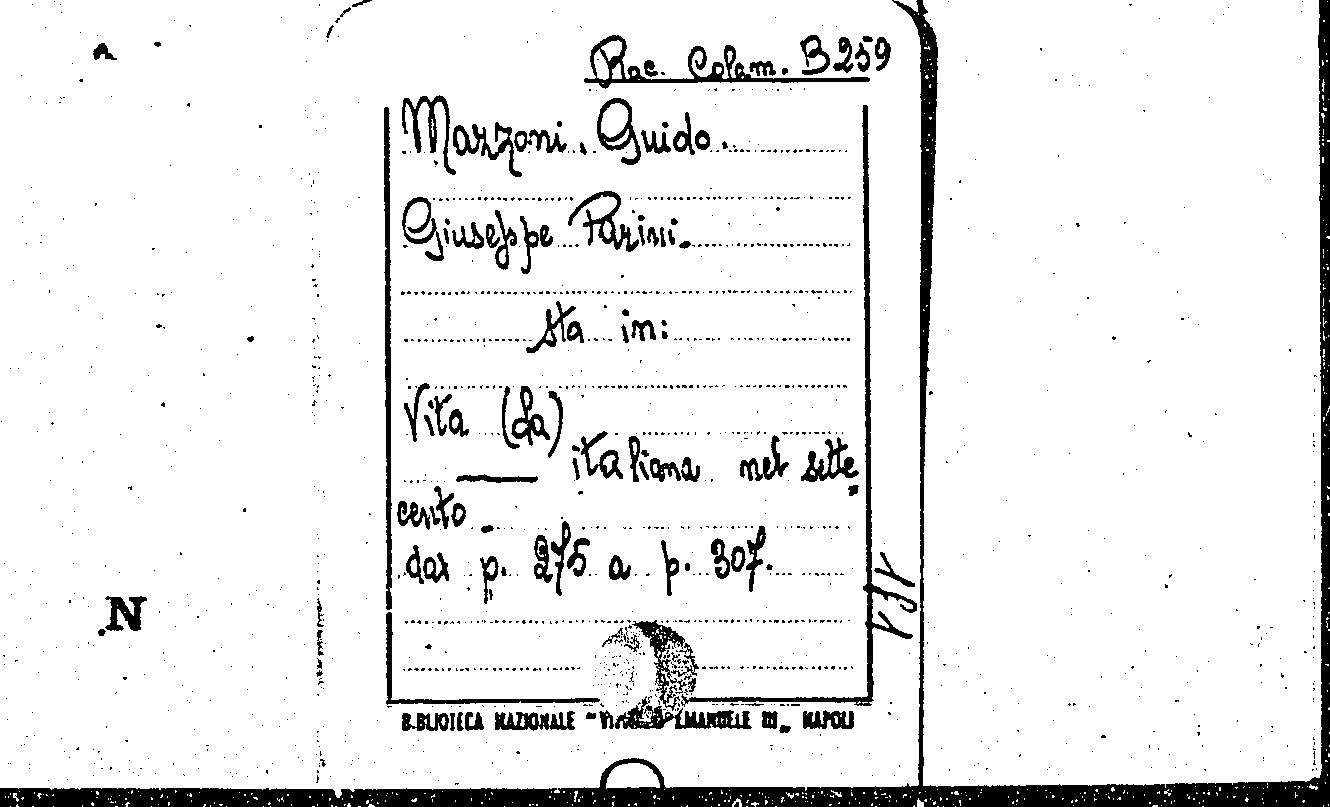 Rac. Colam. B 259
Mazzoni, Guido.
Giuseppe Parini.
sta in:
Vita (La)
italiana nel sette=
cento.
da p. 275 a p. 307.
N
BIBLIOTECA NAZIONALE "VITTORIO EMANUELE III" NAPOLI